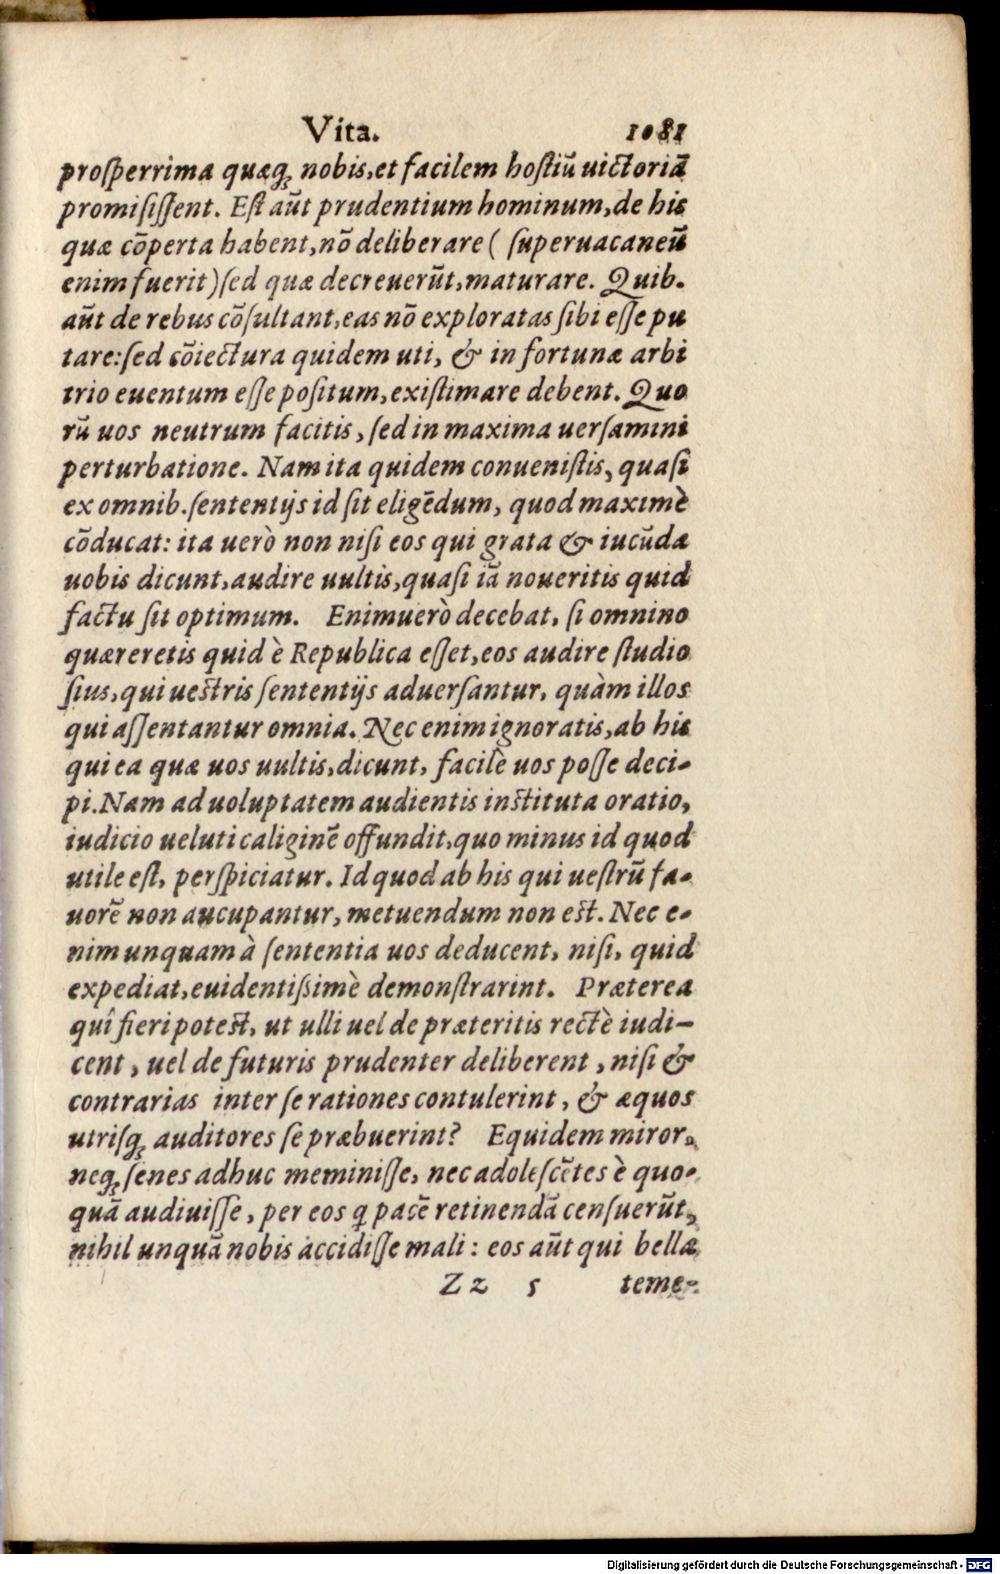 Vita. 1081
proſperrima quæq; nobis, et facilem hoſtiũ uictoriã
promiſiſſent. Eſt aũt prudentium hominum, de his
quæ cõperta habent, nõ deliberare ( ſuperuacaneũ
enim fuerit) ſed quæ decreuerũt, maturare. Quib.
aũt de rebus cõſultant, eas nõ exploratas ſibi eſſe pu
tare: ſed cõiectura quidem uti, & in fortunæ arbi
trio euentum eſſe poſitum, exiſtimare debent. Quo
rũ uos neutrum facitis, ſed in maxima uerſamini
perturbatione. Nam ita quidem conueniſtis, quaſi
ex omnib. ſententijs id ſit eligẽdum, quod maximè
cõducat: ita uerò non niſi eos qui grata & iucũda
uobis dicunt, audire uultis, quaſi iã noueritis quid
factu ſit optimum. Enimuerò decebat, ſi omnino
quæreretis quid è Republica eſſet, eos audire ſtudio
ſius, qui ueſtris ſententijs aduerſantur, quàm illos
qui aſſentantur omnia. Nec enim ignoratis, ab his
qui ea quæ uos uultis, dicunt, facilè uos poſſe deci-
pi. Nam ad uoluptatem audientis inſtituta oratio,
iudicio ueluti caliginẽ offundit, quo minus id quod
utile eſt, perſpiciatur. Id quod ab his qui ueſtrũ fa-
uorẽ non aucupantur, metuendum non eſt. Nec e-
nim unquam à ſententia uos deducent, niſi, quid
expediat, euidentißimè demonſtrarint. Præterea
quî fieri poteſt, ut ulli uel de præteritis rectè iudi-
cent, uel de futuris prudenter deliberent, niſi &
contrarias inter ſe rationes contulerint, & æquos
utriſq; auditores ſe præbuerint? Equidem miror,
neq; ſenes adhuc meminiſſe, nec adoleſcẽtes è quo-
quã audiuiſſe, per eos q pacẽ retinendã cenſuerũt,
nihil unquã nobis accidiſſe mali: eos aũt qui bella
Zz 5 teme-
Digitalisierung gefördert durch die Deutsche Forschungsgemeinschaft - DFG